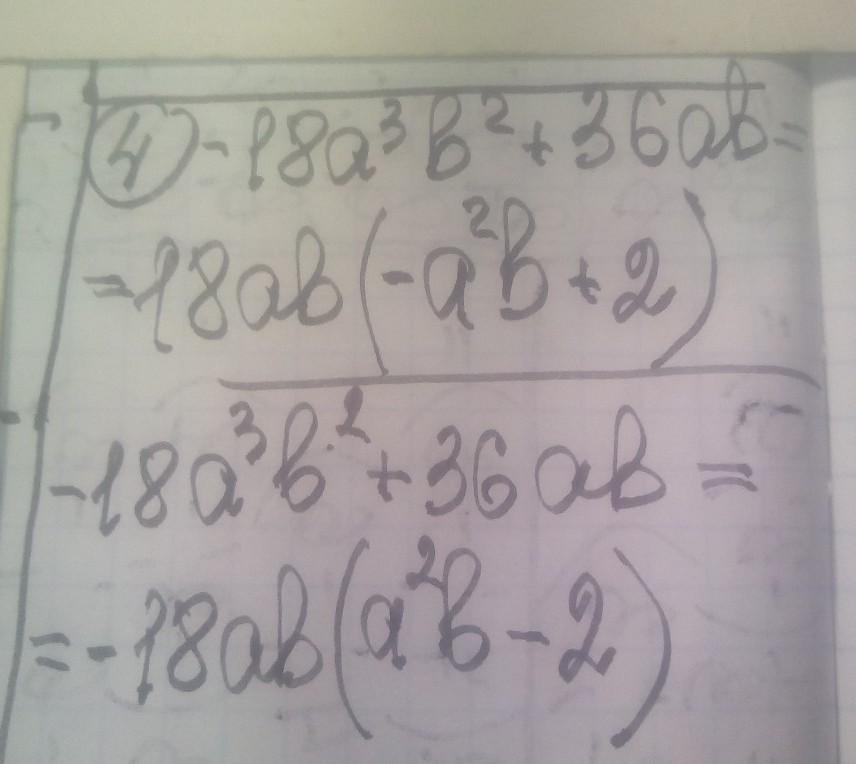 ④ -18a³b² + 36ab =
= 18ab(-a²b + 2)
-18a³b² + 36ab =
= -18ab(a²b - 2)